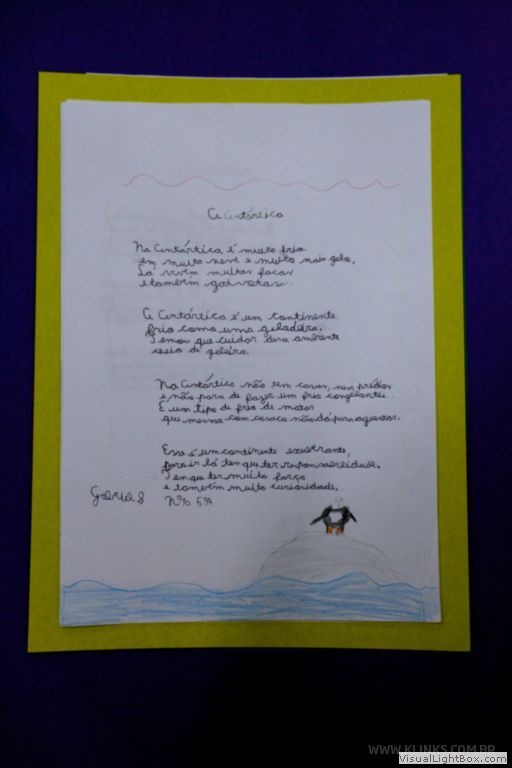 A Antártica
Na Antártica, é muito frio
em muito neve e muito mais gelo,
Lá vivem muitas focas
e também gaivotas.
A Antártica é um continente
frio como uma geladeira.
Temos que cuidar desse ambiente
cheio de geleira.
Na Antártica não tem casas, nem prédios
e não para de fazer um frio congelante..
É um tipo de frio de matar
que mesmo com casaco não dá para aguentar.
Esse é um continente exuberante,
para ir lá tem que ter responsabilidade.
Tem que ter muita força
e também muita curiosidade.
Gabriel g Nº10 5ºA
WWW.KLINKS.COM.BR
VisualLightBox.com